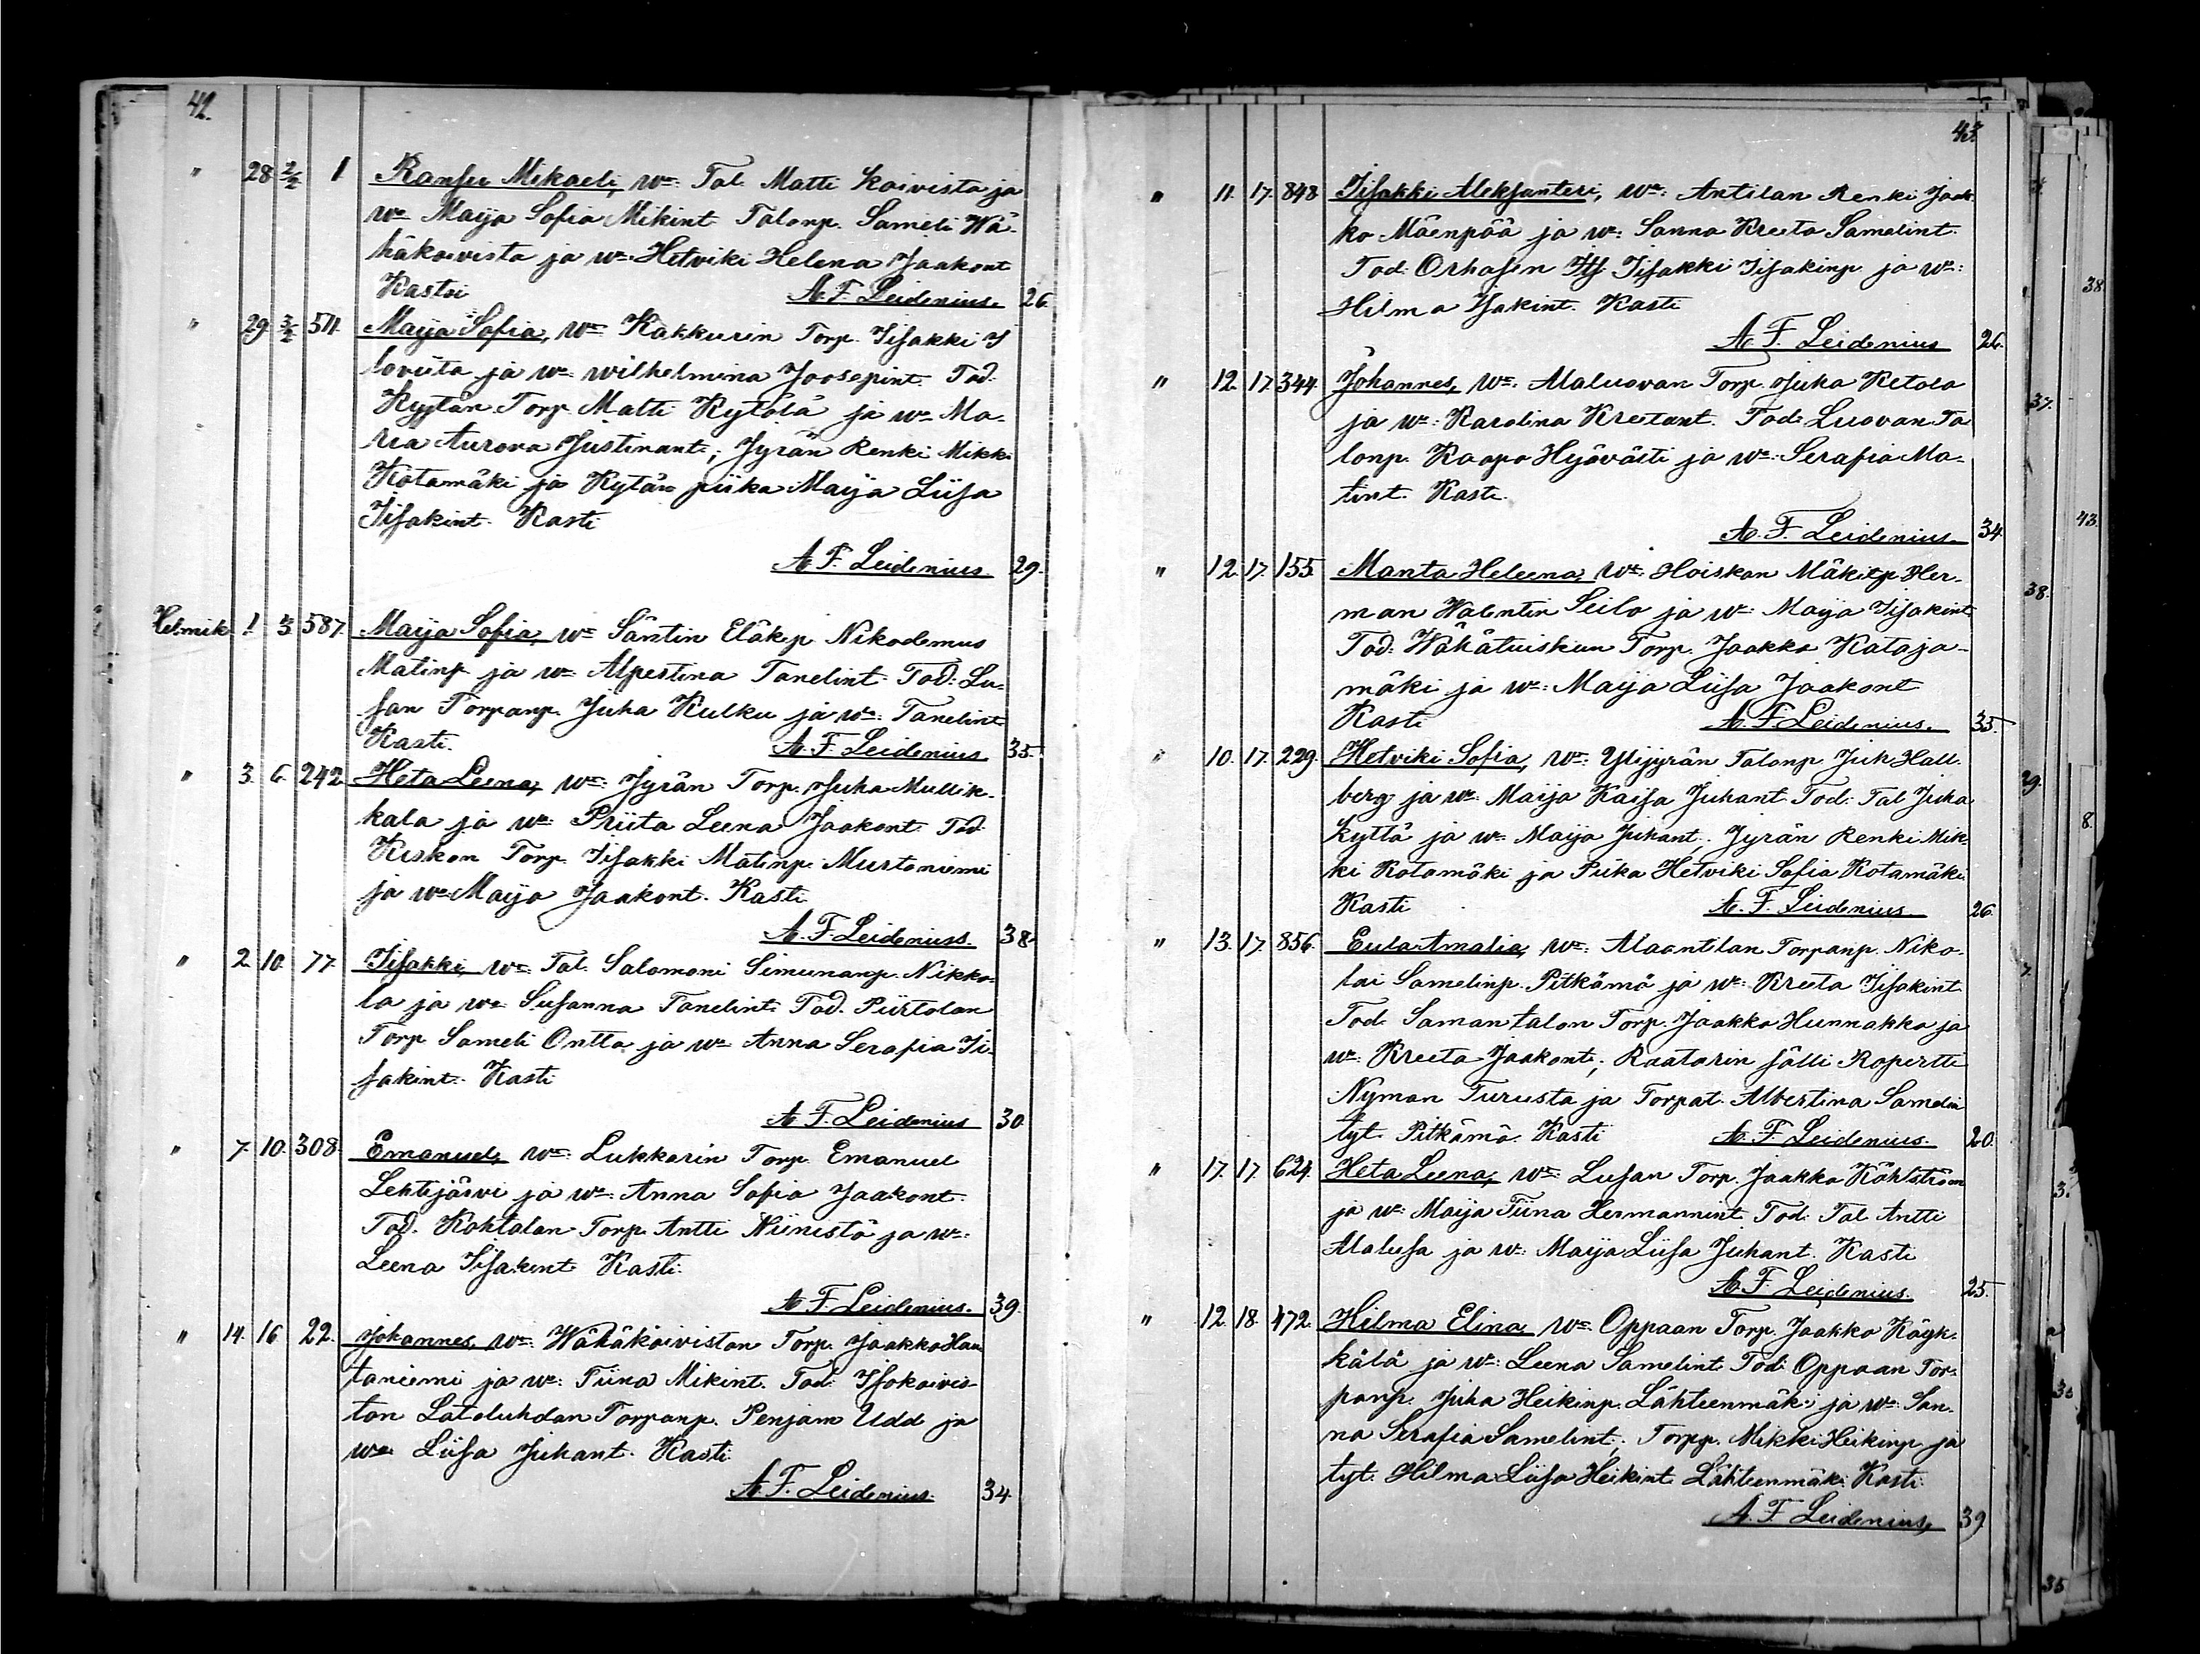 42.
" 28 2/2 1 Ransu Mikaeli, wn: Tal. Matti Koivisto ja
wn Maija Sofia Mikint Talonp. Sameli Wä-
häkoivisto ja wn Hetviki Helena Jaakont
Kastoi A. F. Leidenius. 26.
" 29 3/2 571. Maija Sofia, wn Kakkurin Torp. Iisakki I
loviita ja wn: wilhelmina Joosepint. Tod.
Kyytän Torp. Matti Kytölä ja wn Ma-
ria Aurora Justinant; Jyrän Renki Mikki
Kotamäki ja Kytän piika Maija Liisa
Iisakint. Kasti
A. F. Leidenius 29.
Helmik 1. 3 587. Maija Sofia, wn Säntin Eläkp Nikodemus
Matinp ja wn Alpestina Tanelint Tod: Lu-
san Torpanp. Juha Kulku ja wn: Tanelint
Kasti. A. F. Leidenius 35.
" 3. 6. 242 Heta Leena, wn: Jyrän Torp. Juha Mullik-
kala ja wn: Priita Leena Jaakont Tod.
Keskon Torp. Iisakki Matinp. Murtoniemi
ja wn Maija Jaakont. Kasti
A. F. Leideniuss. 38.
" 2 10. 77. Iisakki, wn: Tal. Salomoni Simunanp. Nikko-
la ja wn: Susanna Tanelint: Tod. Piirtolan
Torp Sameli Ontto ja wn Anna Serafia Ii-
sakint. Kasti
A. F. Leidenius 30.
" 7. 10. 308. Emanuel, wn: Lukkarin Torp. Emanuel
Lehtijärvi ja wn: Anna Sofia Jaakont.
Tod. Kohtalan Torp. Antti Niinistö ja wn:
Leena Iisakint Kasti.
A. F. Leidenius. 39.
" 14. 16 22. Johannes, wn: Wähäkoiviston Torp. Jaakko Hau
taniemi ja wn: Tiina Mikint. Tod: Isokoivis-
ton Latoluhdan Torpanp. Penjam Udd ja
wn Liisa Juhant. Kasti.
A. F. Leidenius. 34
43.
" 11. 17. 848 Iisakki Aleksanteri, wn: Antilan Renki Jaak
ko Mäenpää ja wn: Sanna Kreeta Samelint.
Tod: Orhasen Its Iisakki Iisakinp ja wn:
Hilma Isakint. Kasti
A. F. Leidenius 26.
" 12 17. 344 Johannes, wn: Alaluovan Torp. Juha Ketola
ja wn: Karolina Kreetant. Tod: Luovan Ta
lonp. Kaapo Hyövästi ja wn: Serafia Ma-
tint. Kasti.
A. F. Leidenius. 34.
" 12. 17. 155. Manta Heleena, wn: Hoiskan Mäkitp Her-
man Walentin Seilo ja wn: Maija Iisakint
Tod: Wähätuiskun Torp. Jaakko Kataja-
mäki ja wn: Maija Liisa Jaakont
Kasti A. F. Leidenius. 35.
" 10. 17. 229. Hetviki Sofia, wn: Ylijyrän Talonp. Juh Hall-
berg ja wn: Maija Kaisa Juhant Tod: Tal Juha
Kyttä ja wn Maija Juhant; Jyrän Renki Mik-
ki Kotamäki ja Piika Hetviki Sofia Kotamäki.
Kasti A. F. Leidenius 26.
" 13. 17. 856. Eula Amalia, wn: Alaantilan Torpanp. Niko-
lai Samelinp. Pitkämä ja wn: Kreeta Iisakint
Tod: Samantalon Torp. Jaakko Hunnakko ja
wn: Kreeta Jaakont; Raatarin sälli Ropertti
Nyman Turusta ja Torpat. Albertina Samelin
tyt. Pitkämä. Kasti A. F. Leidenius. 20.
" 17. 17. 624. Heta Leena, wn: Lusan Torp. Jaakko Köhlström
ja wn: Maija Tiina Hermannint. Tod: Tal Antti
Alalusa ja wn: Maija Liisa Juhant. Kasti
A. F. Leidenius. 25.
" 12 18. 472. Hilma Elina, wn: Oppaan Torp. Jaakko Käyk-
kälä ja wn: Leena Samelint Tod: Oppaan Tor-
panp. Juha Heikinp. Lähteenmäki ja wn: San-
na Serafia Samelint; Torpp. Mikki Heikinp ja
tyt. Hilma Liisa Heikint Lähteenmäki. Kasti.
A. F. Leidenius, 39